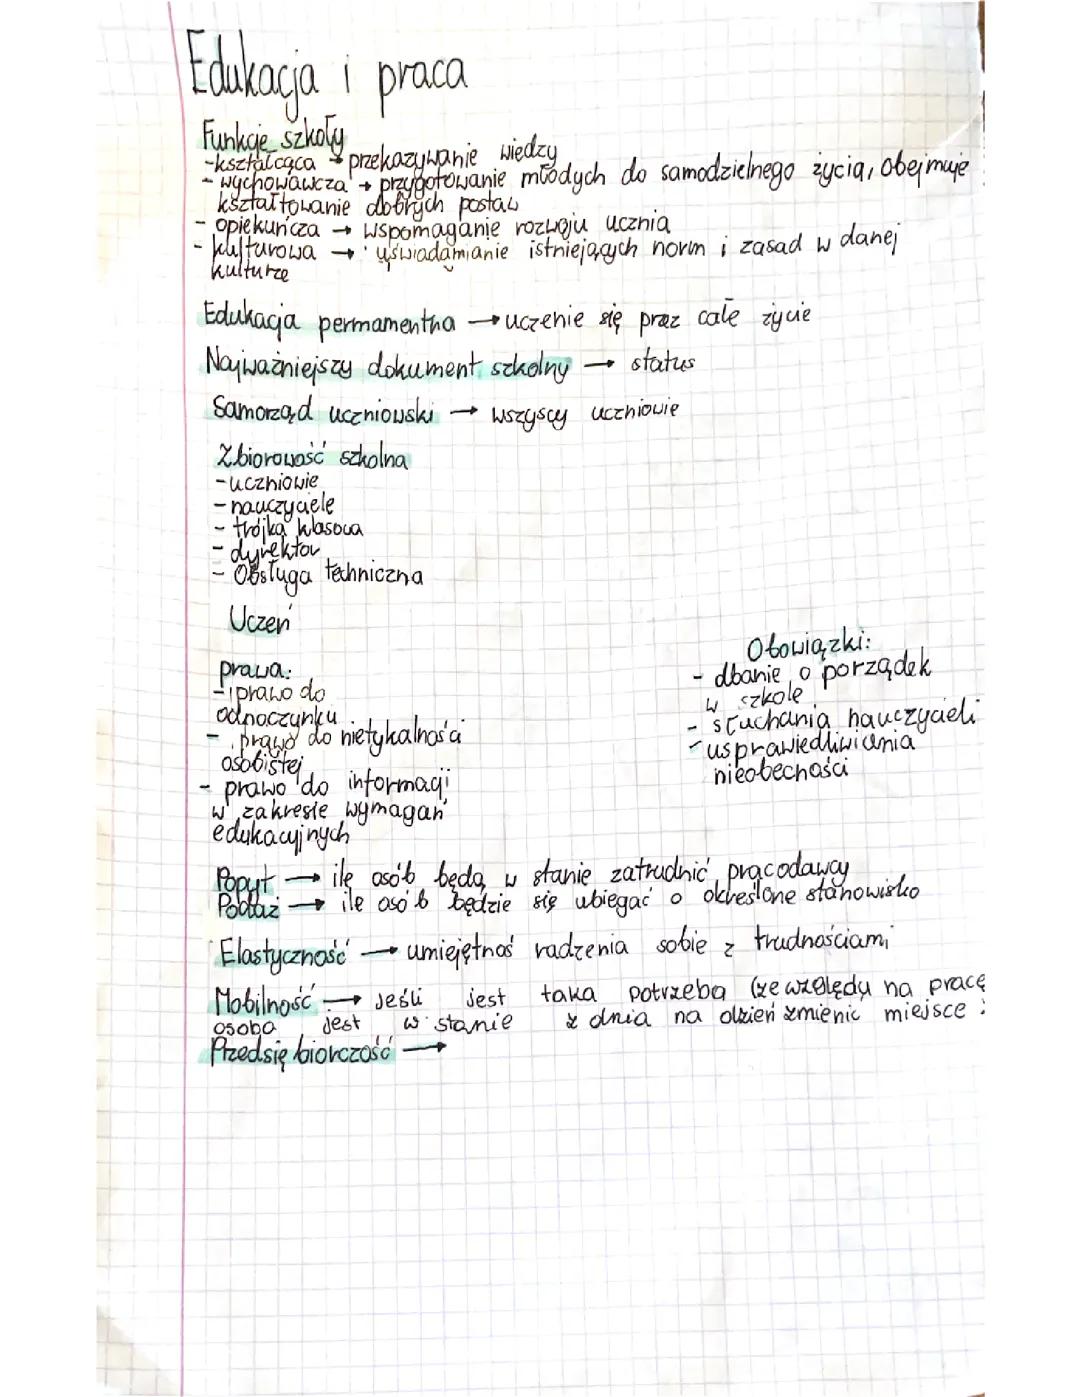 Edukacja i praca
Funkcje szkoły
-kształcąca → przekazywanie wiedzy
- wychowawcza → przygotowanie młodych do samodzielnego życia, obejmuje
kształtowanie dobrych postaw
- opiekuńcza → wspomaganie rozwoju ucznia
- kulturowa → uświadamianie istniejących norm i zasad w danej
kulturze
Edukacja permamentna → uczenie się przez całe życie
Najważniejszy dokument szkolny → status
Samorząd uczniowski → wszyscy uczniowie
Zbiorowość szkolna
-uczniowie
- nauczyciele
- trójka klasowa
- dyrektor
- Obsługa techniczna
Uczeń
prawa:
- prawo do
odpoczynku
- prawo do nietykalności
osobistej
- prawo do informacji
w zakresie wymagań
edukacyjnych
Obowiązki:
- dbanie o porządek
w szkole
- słuchania nauczycieli
- usprawiedliwiania
nieobecności
Popyt → ile osób będą w stanie zatrudnić pracodawcy
Podaż → ile osób będzie się ubiegać o określone stanowisko
Elastyczność → umiejętnoś radzenia sobie z trudnościami
Mobilność → Jeśli jest taka potrzeba (ze względu na pracę
osoba jest w stanie z dnia na dzień zmienić miejsce :
Przedsiębiorczość →